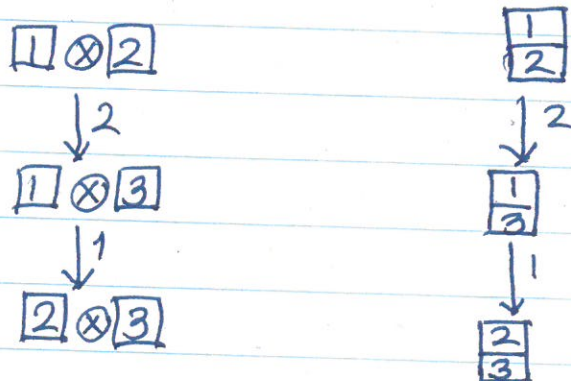 1 ⊗ 2
2
1 ⊗ 3
1
2 ⊗ 3
1
2
2
1
3
1
2
3